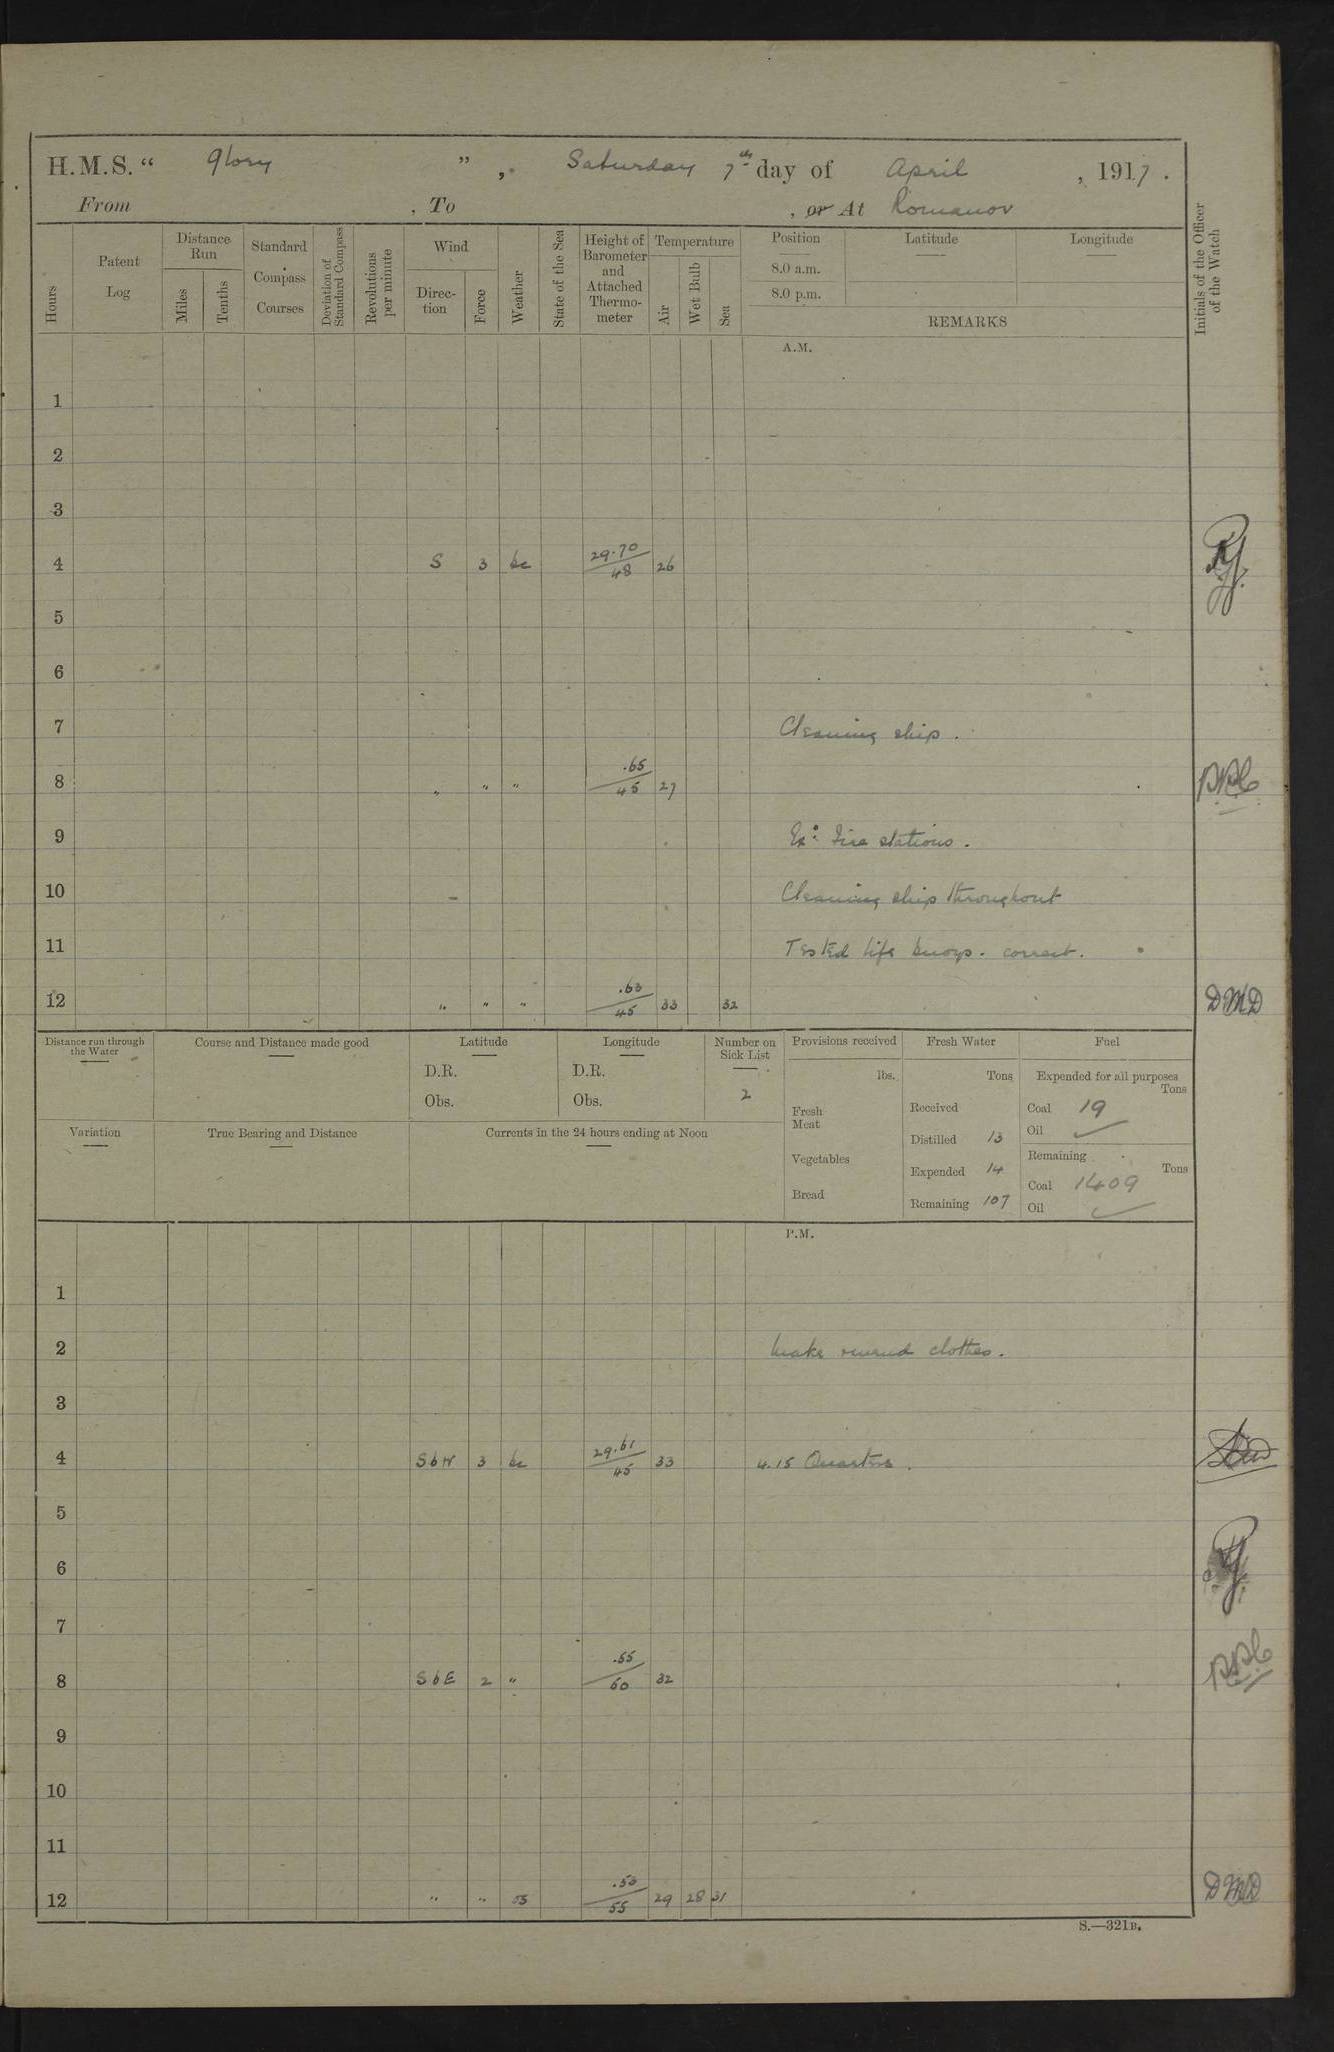 H.M.S. “ Glory ”, Saturday 7th day of April, 1917.
From , To , or At Romanov
Hours
Patent Log
Distance Run
Miles
Tenths
Standard Compass Courses
Deviation of Standard Compass
Revolutions per minute
Wind
Direction
Force
Weather
State of the Sea
Height of Barometer and Attached Thermometer
Temperature
Air
Wet Bulb
Sea
Position
8.0 a.m.
8.0 p.m.
Latitude
Longitude
REMARKS
Initials of the Officer of the Watch
A.M.
1
2
3
4 S 3 bc 29.70/48 26
5
6
7 Cleaning ship.
8 " " " .65/45 27
9 Ex: Fire stations.
10 Cleaning ship throughout
11 Tested life buoys. correct.
12 " " " .63/45 33 32 DMD
Distance run through the Water
Course and Distance made good
Latitude
D.R.
Obs.
Longitude
D.R.
Obs.
Number on Sick List
2
Provisions received
lbs.
Fresh Meat
Vegetables
Bread
Fresh Water
Tons
Received
Distilled 13
Expended 14
Remaining 107
Fuel
Expended for all purposes
Tons
Coal 19
Oil
Remaining
Tons
Coal 1409
Oil
Variation
True Bearing and Distance
Currents in the 24 hours ending at Noon
P.M.
1
2 Make mend clothes.
3
4 SbW 3 bc 29.61/45 33 4.15 Quarters.
5
6
7
8 SbE 2 " .55/60 32
9
10
11
12 " " .53/55 29 28 31 DMD
S.—321B.